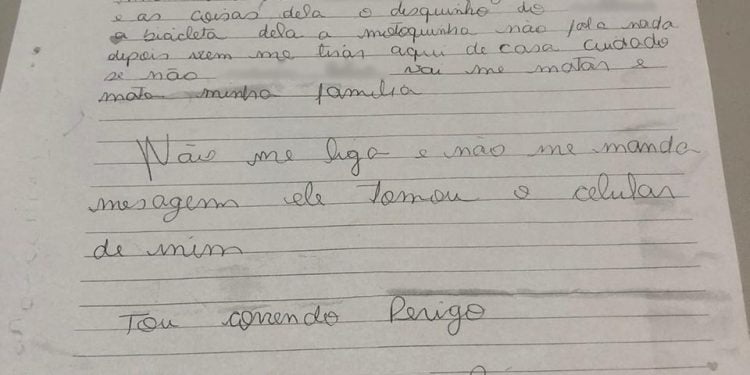 e as coisas dela o disquinho do
a bicicleta dela a motoquinha não fala nada
depois vem me tirar aqui de casa cuidado
se não vai me matar e
mata minha familia
Não me liga e não me manda
mesagem ele tomou o celular
de mim
Tou correndo Perigo